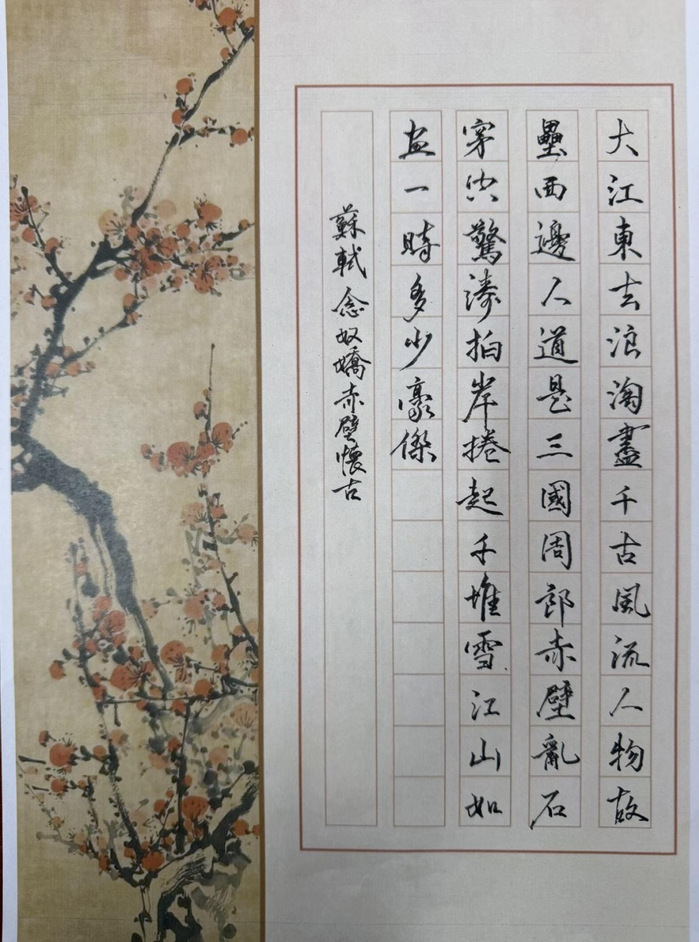 大江東去浪淘盡千古風流人物故
壘西邊人道是三國周郎赤壁亂石
穿空驚濤拍岸捲起千堆雪江山如
畫一時多少豪傑
蘇軾念奴嬌赤壁懷古